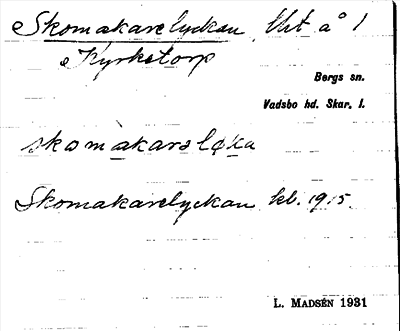 Skomakarelyckan, Utt å 1
Kyrketorp
Bergs sn.
Vadsbo hd. Skar. l.
skomakarsløka
Skomakarelyckan kb. 1915.
L. MADSÉN 1931